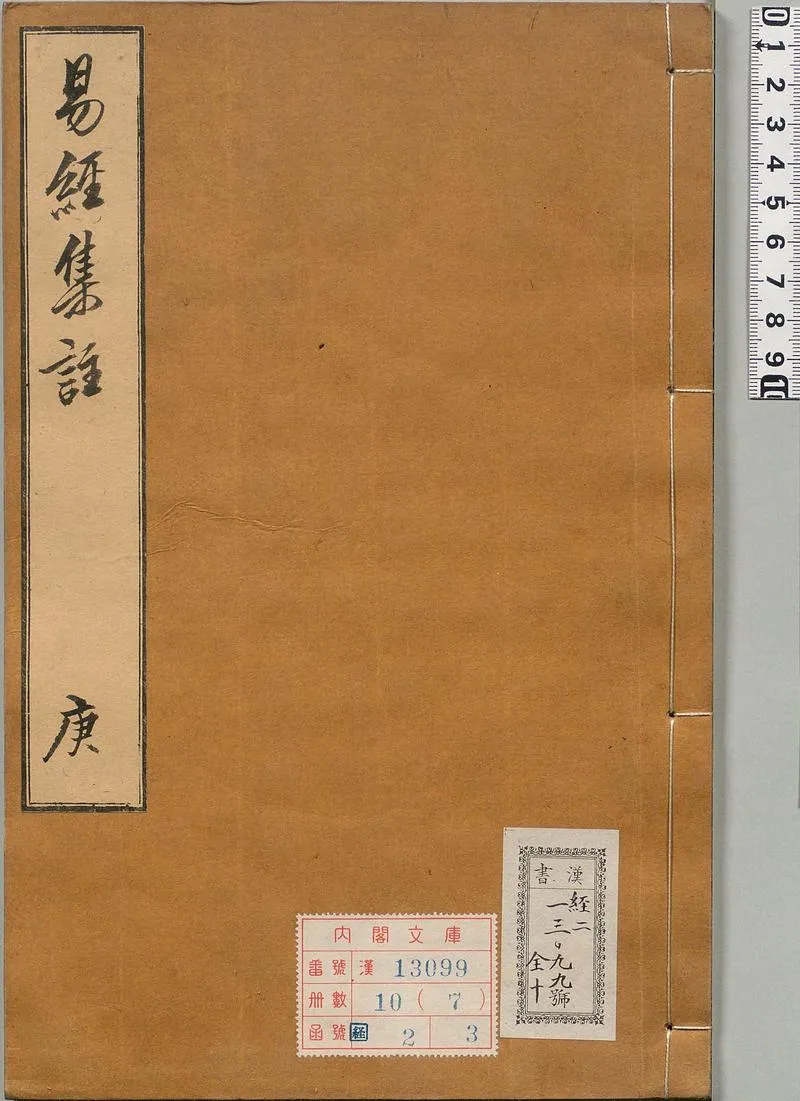 易經集註
庚
漢書
経二
一三〇九九號
全十
内閣文庫
番號 漢 13099
册數 10 ( 7 )
函號 経 2 3
0 1 2 3 4 5 6 7 8 9 10